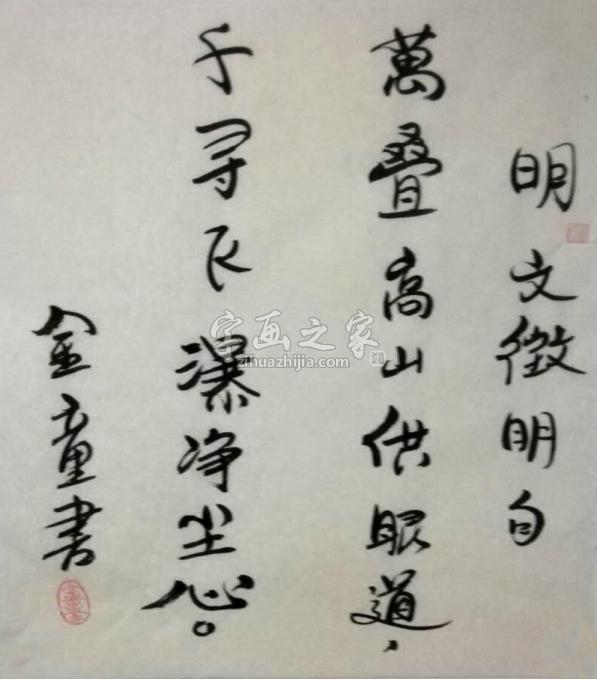 明文徵明句
萬叠高山供眼道，
千尋飞瀑净尘心。
金童書
字画之家
zihuazhijia.com